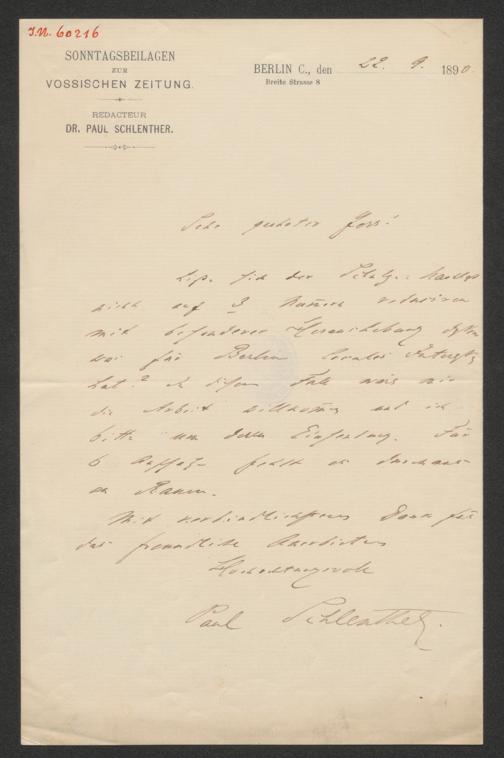 J.N. 60216
SONNTAGSBEILAGEN
ZUR
VOSSISCHEN ZEITUNG.
REDACTEUR
DR. PAUL SCHLENTHER.
BERLIN C., den 22. 9. 1890
Breite Strasse 8
Sehr geehrter Herr!
sich der
nicht auf 3 Nummern reduziren
mit besonderer Hervorhebung
was für Berlin locales Interesse
hat? In diesem Falle wäre mir
die Arbeit willkommen und ich
bitte um deren Einsendung. Für
6 Aufsätze fehlt es durchaus
an Raum.
Mit verbindlichstem Dank für
das freundliche Anerbieten
Hochachtungsvoll
Paul Schlenther.